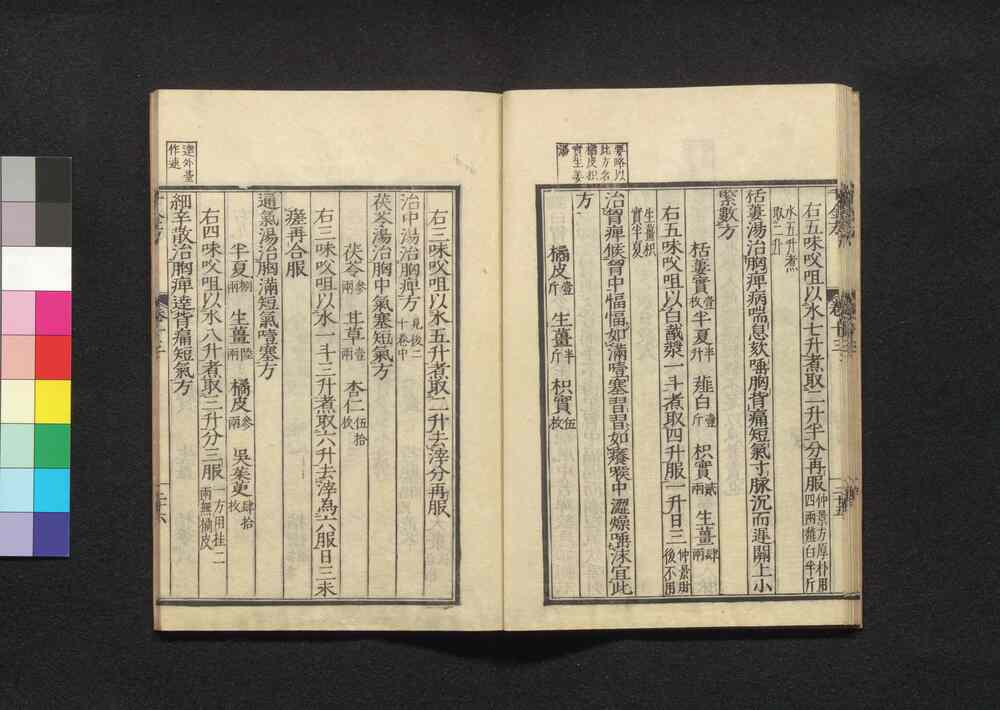 右五味㕮咀以水七升煮取二升半分再服仲景方厚朴用四兩薤白半斤
水五升煮取二升
栝蔞湯治胸痺病喘息欬唾胸背痛短氣寸脉沉而遲關上小
緊數方
栝蔞實壹枚 半夏半升 薤白壹斤 枳實貳兩 生薑肆兩
右五味㕮咀以白截漿一斗煮取四升服一升日三仲景肘後不用
生薑枳實半夏
治胸痺候胸中愊愊如滿噎塞習習如癢喉中澀燥唾沫宜此
方
橘皮壹斤 生薑半斤 枳實伍枚
要略以
此方名
橘皮枳
實生姜
湯
右三味㕮咀以水五升煮取二升去滓分再服
治中湯治胸痺方見後二十卷中
茯苓湯治胸中氣塞短氣方
茯苓參兩 甘草壹兩 杏仁伍拾枚
右三味㕮咀以水一斗三升煮取六升去滓為六服日三未
瘥再合服
通氣湯治胸滿短氣噎塞方
半夏捌兩 生薑陸兩 橘皮參兩 吳茱萸肆拾枚
右四味㕮咀以水八升煮取三升分三服一方用桂二兩無橘皮
細辛散治胸痺達背痛短氣方
達外臺
作連